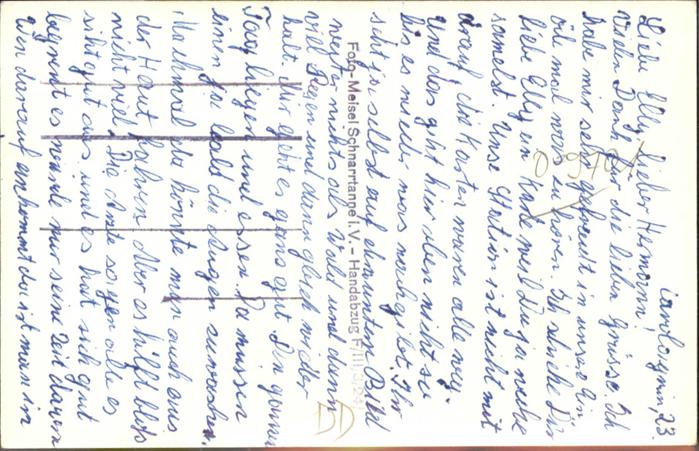 Carolagrün, 23.
Liebe Elly, lieber Hermann!
Vielen Dank für die lieben Grüsse. Ich
habe mir sehr gefreut in unsere Ein
öde mal was zu hören. Ich schicke Dir
liebe Elly ein Karte weil Du ja welche
sammelst. Unse Station ist nicht mit
drauf die Karten waren alle weg.
Und das gibt hier oben nicht so
bis es wieder was nachgibt. Ihr
seht ja selbst auf dem unten Bild
weiter nichts als Wald und dann
viel Regen und dann gleich wieder
kalt. Mir geht es ganz gut. Den ganzen
Tag liegen und essen. Da müssen
einen ja bald die Augen zuwachsen.
Machmal da könnte man auch aus
der Haut fahren. Aber es hilft bloß
nicht viel. Die Ärzte sagen alle es
sieht gut aus und es hat sich gut
begrenzt es wende nur seine Zeit davon
Wen darauf ankommt du ist man in
Foto-Meisel Schnarrtanne i.V. - Handabzug F/III/